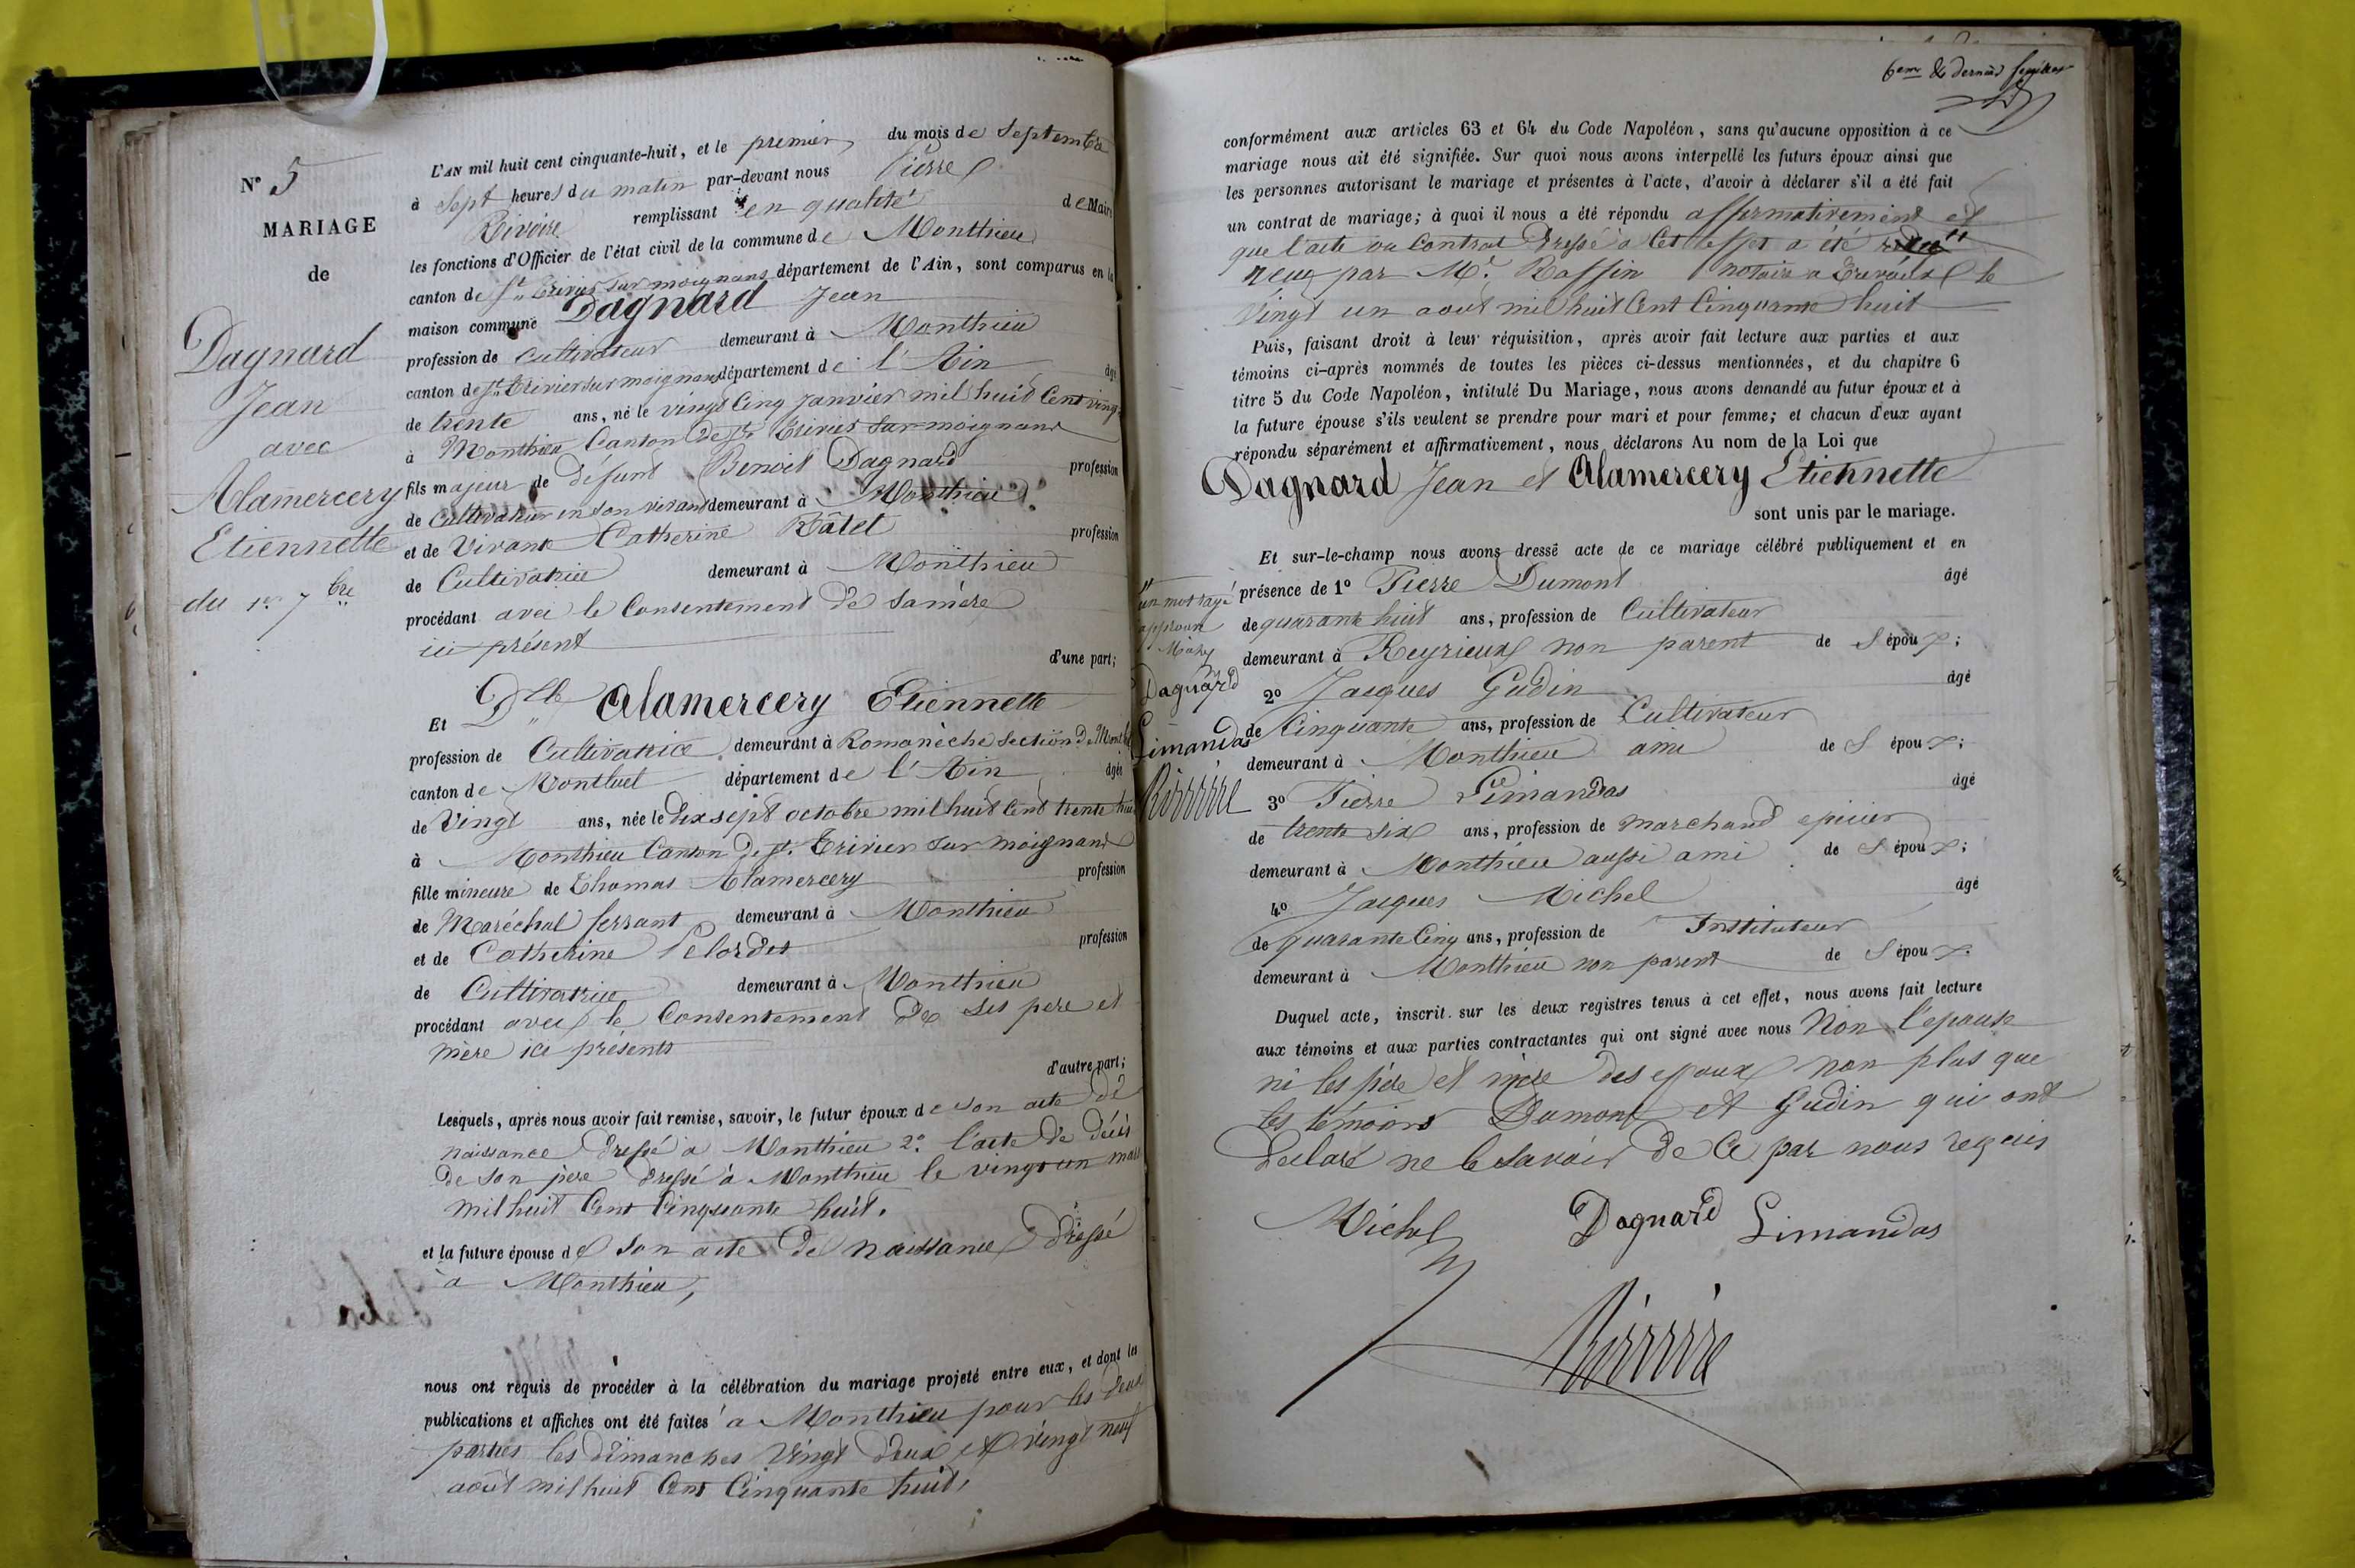 N° 5
MARIAGE
de
Dagnard
Jean
avec
Alamercery
Etiennette
du 1er 7bre
L'AN mil huit cent cinquante-huit, et le premier du mois de Septembre
à Sept heures du matin par-devant nous Pierre
Rivoire remplissant en qualité de Maire
les fonctions d'Officier de l'état civil de la commune de Monthieu
canton de St Trivier sur moignans département de l'Ain, sont comparus en la
maison commune Dagnard Jean
profession de Cultivateur demeurant à Monthieu
canton de St Trivier sur moignans département de l'Ain âgé
de trente ans, né le vingt Cinq Janvier mil huit Cent vingt
à Monthieu Canton de St Trivier Sur moignans
fils majeur de défunt Benoit Dagnard profession
de Cultivateur en son vivant demeurant à Monthieu
et de Vivante Catherine Bâlet profession
de Cultivatrice demeurant à Monthieu
procédant avec le Consentement de sa mère
ici présent
d'une part;
Et Dlle Alamercery Etiennette
profession de Cultivatrice demeurant à Romanèche Section de
canton de Montluel département de l'Ain âgée
de Vingt ans, née le dix sept octobre mil huit Cent trente
à Monthieu Canton de St. Trivier Sur moignans
fille mineure de Thomas Alamercery profession
de Maréchal ferrant demeurant à Monthieu
et de Catherine Pelordet profession
de Cultivatrice demeurant à Monthieu
procédant avec le Consentement de ses pere et
mère ici présents
d'autre part;
Lesquels, après nous avoir fait remise, savoir, le futur époux de son acte de
naissance dressé a Monthieu 2° l'acte de décès
de son père dressé à Monthieu le vingt un
mil huit Cent Cinquante huit.
et la future épouse de son acte de naissance dressé
à Monthieu,
nous ont requis de procéder à la célébration du mariage projeté entre eux, et dont les
publications et affiches ont été faites a Monthieu pour les deux
parties les dimanches Vingt deux et vingt neuf
août mil huit Cent Cinquante huit,
6eme & dernier feuillet
conformément aux articles 63 et 64 du Code Napoléon, sans qu'aucune opposition à ce
mariage nous ait été signifiée. Sur quoi nous avons interpellé les futurs époux ainsi que
les personnes autorisant le mariage et présentes à l'acte, d'avoir à déclarer s'il a été fait
un contrat de mariage; à quoi il nous a été répondu affirmativement et
que l'acte ou Contrat dressé à Cet effet a été
par Me. Raffin notaire a Trevoux le
Vingt un aout mil huit Cent Cinquante huit
Puis, faisant droit à leur réquisition, après avoir fait lecture aux parties et aux
témoins ci-après nommés de toutes les pièces ci-dessus mentionnées, et du chapitre 6
titre 5 du Code Napoléon, intitulé Du Mariage, nous avons demandé au futur époux et à
la future épouse s'ils veulent se prendre pour mari et pour femme; et chacun d'eux ayant
répondu séparément et affirmativement, nous déclarons Au nom de la Loi que
Dagnard Jean et Alamercery Etiennette
sont unis par le mariage.
Et sur-le-champ nous avons dressé acte de ce mariage célébré publiquement et en
présence de 1° Pierre Dumont âgé
de quarante huit ans, profession de Cultivateur
demeurant à Reyrieux non parent de l'époux;
2° Jacques Gudin âgé
de Cinquante ans, profession de Cultivateur
demeurant à Monthieu ami de l'époux;
3° Pierre Limandas âgé
de trente six ans, profession de marchand epicier
demeurant à Monthieu aussi ami de l'époux;
4° Jacques Michel âgé
de quarante Cinq ans, profession de Instituteur
demeurant à Monthieu non parent de l'époux.
un mot rayé
approuvé
Dagnard
Limandas
Rivoire
Duquel acte, inscrit sur les deux registres tenus à cet effet, nous avons fait lecture
aux témoins et aux parties contractantes qui ont signé avec nous Non l'epouse
ni les père et mère des epoux non plus que
les témoins Dumont et Gudin qui ont
declaré ne le savoir de Ce par nous requis
Michel Dagnard Limandas
Rivoire